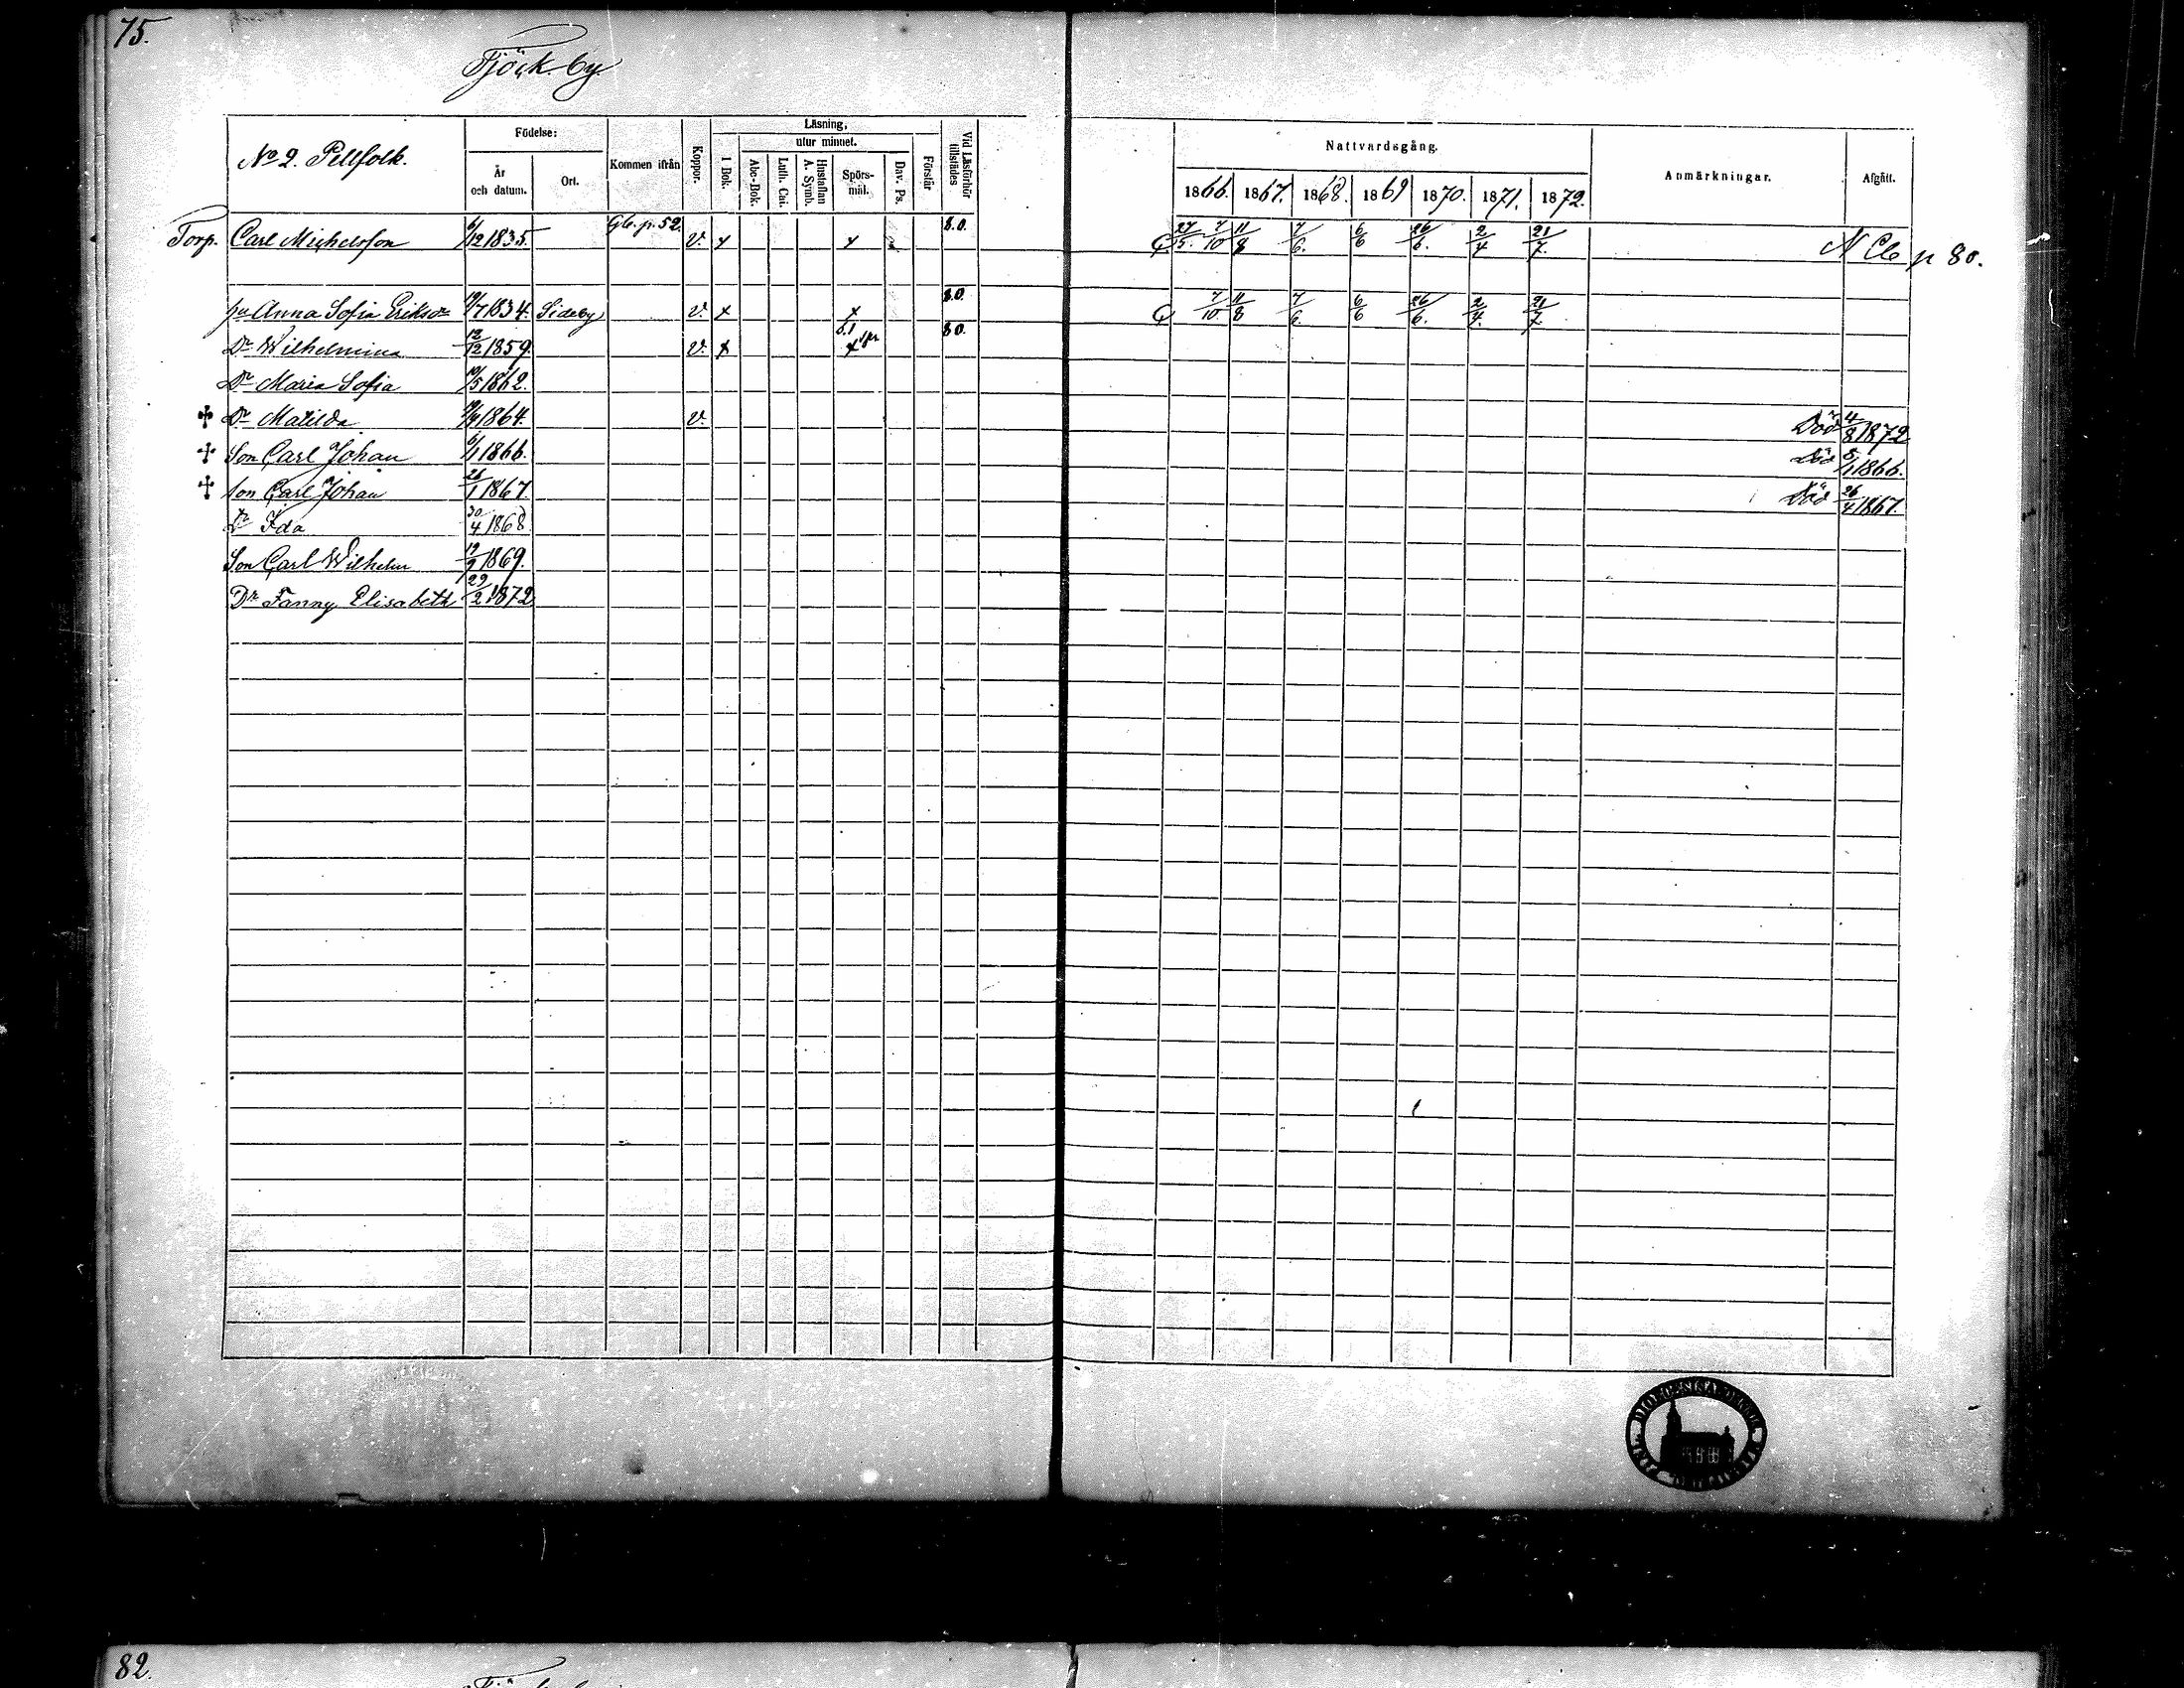 75.
Tjöck by
No 2. Pellfolk.
Födelse:
År och datum.
Ort.
Kommen ifrån
Koppor.
Läsning,
utur minnet.
I Bok.
Abc-Bok.
Luth. Cat.
Hustaflan A. Symb.
Spörs-mål.
Dav. Ps.
Förstår
Vid Läsförhör tillstädes
Nattvardsgång.
1866. 1867. 1868. 1869 1870. 1871. 1872.
Anmärkningar.
Afgått.
Torp. Carl Michelsson 6/12 1835. Gb. p. 52. v. x x 8.0. 27/5. 7/10 11/8 7/6. 6/6 26/6. 2/4 21/7. N Cb p 80.
hu Anna Sofia Eriksdr 19/7 1834. Sideby v. x x 8.0. 7/10. 11/8 7/6. 6/6 26/6. 2/4. 21/7.
Dr Wilhelmina 12/12 1859. v. x x 8.0.
Dr Maria Sofia 10/5 1862.
Dr Matilda 1864. v. Död 4/8 1872
Son Carl Johan 6/1 1866. Död 1866.
Son Carl Johan 26/1 1867. Död 26/4 1867.
Dr Ida 30/4 1868.
Son Carl Wilhelm 19/9 1869.
Dr Fanny Elisabeth 29/2 1872
82.